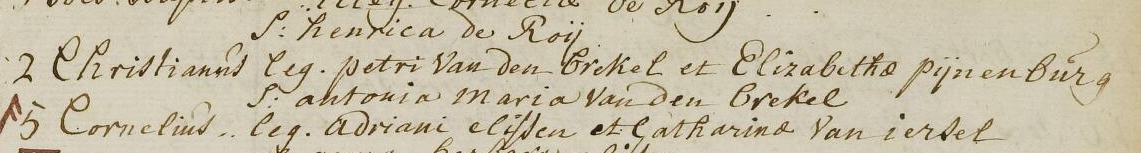 illeg. Cornelie de Roij
S: henrica de Roij
2 Christianus leg. petri Van den brekel et Elizabethæ pijnenbürg
S: antonia Maria Van den brekel
5 Cornelius.. leg. Adriani elissen et Catharinæ Van iersel